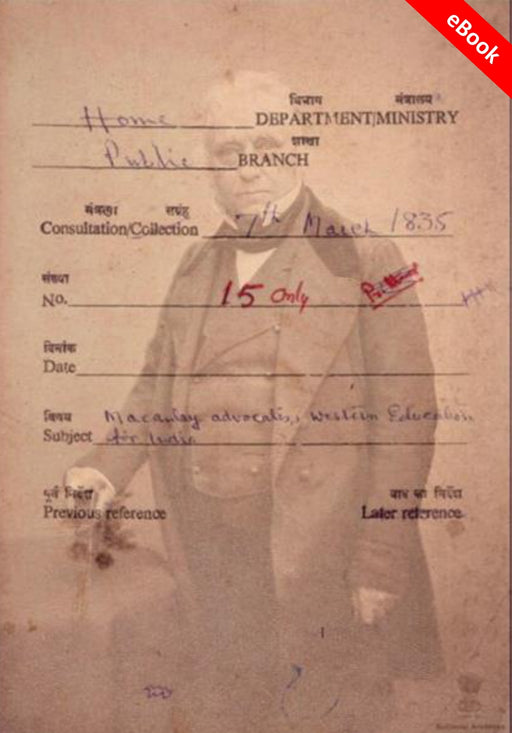 eBook
विभाग मंत्रालय
Home DEPARTMENT/MINISTRY
शाखा
Public BRANCH
संग्रह
Consultation/Collection 7th March 1835
संख्या
No. 15 only
दिनांक
Date
विषय Macaulay advocates, Western Education
Subject for India
पूर्व निर्देश बाद का निर्देश
Previous reference Later reference